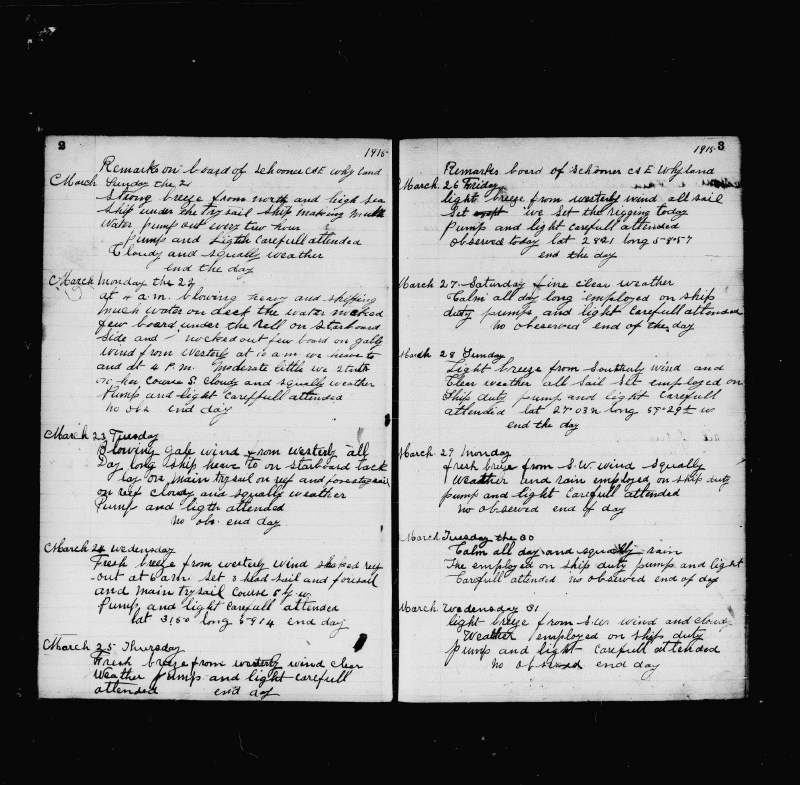 2
1915
Remarks on board of Schooner C & E Whyland
March Sunday the 21
Strong breeze from north and high sea
Ship under the try sail ship making much
water pump out every two hour
Pump and Ligth carefull attended
Cloudy and squally weather
end the day
March Monday the 22
at 4 a.m. blowing heavy and shipping
much water on deck the water
few board under the rell on starboard
side and few board on
wind from westerly at 10 a.m we heave to
and at 4 P.M. Moderate little we
on her course S. cloudy and squally weather
Pump and light careffull attended
no obs. end day
March 23 Tuesday
Blowing gale wind from westerly all
Day long ship heave to on starboard tack
lay on main trysail on reef and foresty sail
on reef cloudy and squally weather
Pump and ligth attended
no obs. end day
March 24 Wedensday
Fresh breeze from westerly wind shaked reef
out at 6 a.m. set 3 head sail and foresail
and main trysail course
Pump and light carefull attended
lat 3150 long 5814 end day
March 25 Thursday
Fresh breeze from westerly wind clear
Weather pump and light carefull
attended end day
1915 3
Remarks board of Schooner C & E Whyland
March 26 Friday
light breeze from westerly wind all sail
set we set the rigging today
Pump and light carefull attended
observed today lat 2821 long 58.57
end the day
March 27 Saturday fine clear weather
Calm all day long employed on ship
duty pumps and light carefull attended
no observed end of the day
March 28 Sunday
Light breeze from Southerly wind and
Cleer weather all sail set employed on
Ship duty pump and light carefull
attended lat 27.03 n long 59.29 w
end the day
March 29 Monday
fresh breeze from S.W. wind squally
Weather and rain employed on ship duty
pump and light carefull attended
no observed end of day
March Tuesday the 30
Calm all day and squally rain
The employed on ship duty pump and light
Carefull attended no observed end of day
March Wedensday 31
light breeze from S.W. wind and cloudy
Weather employed on ships duty
pump and light carefull attended
no observed end day